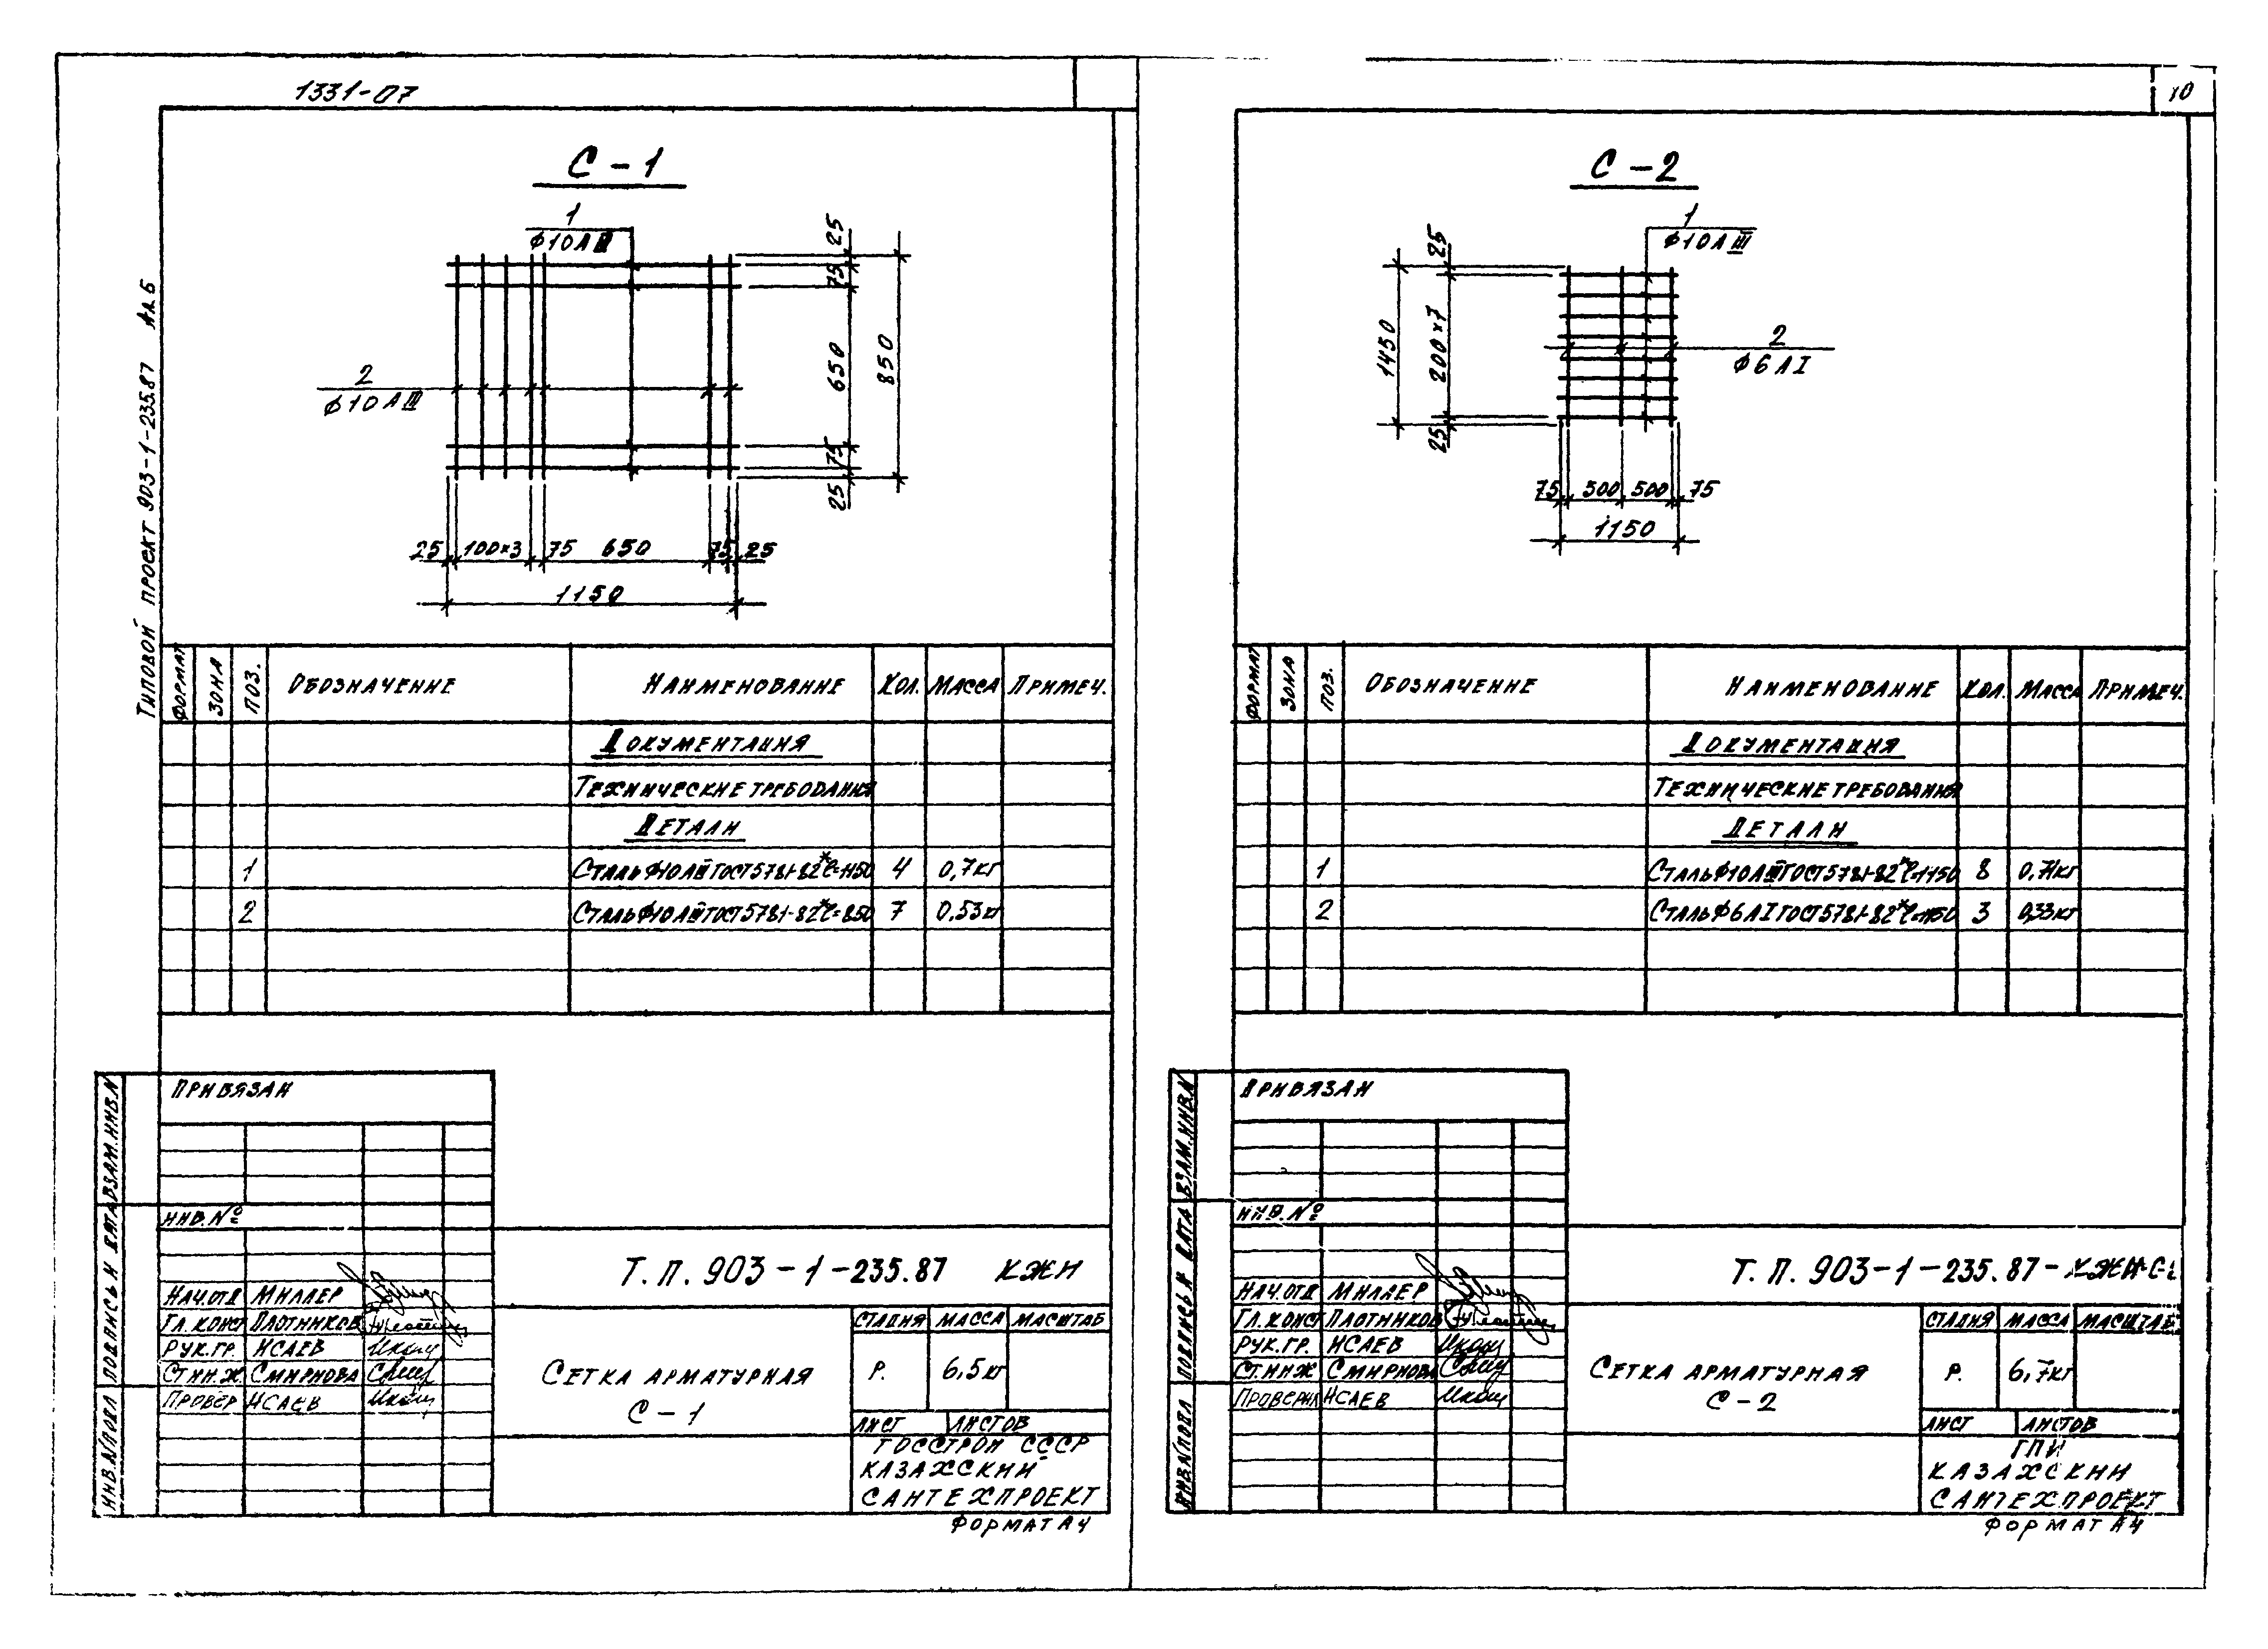 1331-07
10
Типовой проект 903-1-235.87 Ал.6
С-1
1
ф10АIII
2
ф10АIII
25
75
650
75
25
850
25 100×3 75 650 75 25
1150
ФОРМАТ ЗОНА ПОЗ. ОБОЗНАЧЕНИЕ НАИМЕНОВАНИЕ КОЛ. МАССА ПРИМЕЧ.
ДОКУМЕНТАЦИЯ
ТЕХНИЧЕСКИЕ ТРЕБОВАНИЯ
ДЕТАЛИ
1 СТАЛЬ Ф10АIII ГОСТ 5781-82* ℓ=1150 4 0,7кг
2 СТАЛЬ Ф10АIII ГОСТ 5781-82* ℓ=850 7 0,53кг
ПРИВЯЗАН
ИНВ.№
ИНВ.N ПОДЛ ПОДПИСЬ И ДАТА ВЗАМ.ИНВ.N
Т.П. 903-1-235.87 КЖИ
НАЧ.ОТД МИЛЛЕР
ГЛ.КОНСТ ПЛОТНИКОВ
РУК.ГР. ИСАЕВ
СТ.ИНЖ. СМИРНОВА
ПРОВЕР ИСАЕВ
СЕТКА АРМАТУРНАЯ
С-1
СТАДИЯ МАССА МАСШТАБ
Р. 6,5кг
ЛИСТ ЛИСТОВ
ГОССТРОЙ СССР
КАЗАХСКИЙ
САНТЕХПРОЕКТ
ФОРМАТ А4
С-2
1
ф10АIII
2
ф6АI
25
200×7
25
1450
75 500 500 75
1150
ФОРМАТ ЗОНА ПОЗ. ОБОЗНАЧЕНИЕ НАИМЕНОВАНИЕ КОЛ. МАССА ПРИМЕЧ.
ДОКУМЕНТАЦИЯ
ТЕХНИЧЕСКИЕ ТРЕБОВАНИЯ
ДЕТАЛИ
1 СТАЛЬ Ф10АIII ГОСТ 5781-82* ℓ=1150 8 0,71кг
2 СТАЛЬ Ф6АI ГОСТ 5781-82* 3 0,33кг
ПРИВЯЗАН
ИНВ.№
ИНВ.N ПОДЛ ПОДПИСЬ И ДАТА ВЗАМ.ИНВ.N
Т.П. 903-1-235.87-КЖИ-С-2
НАЧ.ОТД МИЛЛЕР
ГЛ.КОНСТ ПЛОТНИКОВ
РУК.ГР. ИСАЕВ
СТ.ИНЖ СМИРНОВА
ПРОВЕРИЛ ИСАЕВ
СЕТКА АРМАТУРНАЯ
С-2
СТАДИЯ МАССА МАСШТАБ
Р. 6,7кг
ЛИСТ ЛИСТОВ
ГПИ
КАЗАХСКИЙ
САНТЕХПРОЕКТ
ФОРМАТ А4